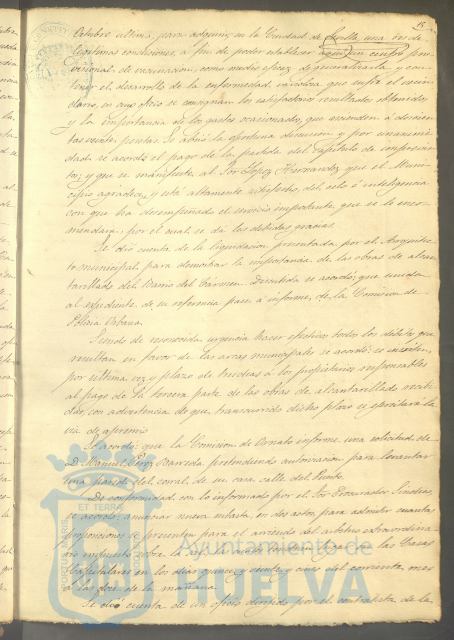 15
Octubre último para adquirir en la Ciudad de Sevilla una ... de
legítimas condiciones, a fin de poder establecer aquí un centro pro-
visional de vacunación, como medio eficaz de ... y con-
tener el desarrollo de la enfermedad variolosa que sufre el vecin-
dario, en cuyo oficio se consignan los satisfactorios resultados obtenidos,
y la importancia de los gastos ocasionados, que ascienden a doscien-
tas veinte pesetas. Se abrió la oportuna discusión y por unanimi-
dad se acordó el pago de la partida del Capítulo de imprevis-
tos; y que se manifieste al Sor. López Hernández que el Muni-
cipio agradece, y está altamente satisfecho del celo é inteligencia
con que ha desempeñado el servicio importante que se le enco-
mendara, por el cual se da las debidas gracias.
Se dió cuenta de la liquidación presentada por el Arquitec-
to municipal para demostrar la importancia de las obras de alcan-
tarillado del Barrio del Carmen. Discutida se acordó: que unida
al expediente de su referencia pase á informe de la Comisión de
Policía Urbana.
Siendo de reconocida urgencia hacer efectivos todos los débitos que
resultan en favor de las arcas municipales se acordó: se ...
por última vez y plazo de tres días á los propietarios responsables
al pago de la tercera parte de las obras de alcantarillado realiza-
das, con advertencia de que, transcurrido dicho plazo se ejercitará la
vía de apremio.
Se acordó: que la Comisión de Ornato informe una solicitud de
D. Manuel Pérez Barreda pretendiendo autorización para levantar
una pared del corral de su casa calle del Puerto.
De conformidad con lo informado por el Sor. Procurador Síndico,
se acordó: anunciar nueva subasta en dos partes para admitir cuantas
proposiciones se presenten para el arriendo del arbitrio extraordina-
rio impuesto sobre la ... en las Casas
Capitulares en los días quince y veinte y cinco del corriente mes
a las doce de la mañana.
Se dió cuenta de un oficio dirigido por el contratista de la
PORTUS MARIS
ET TERRAE
Ayuntamiento de
HUELVA